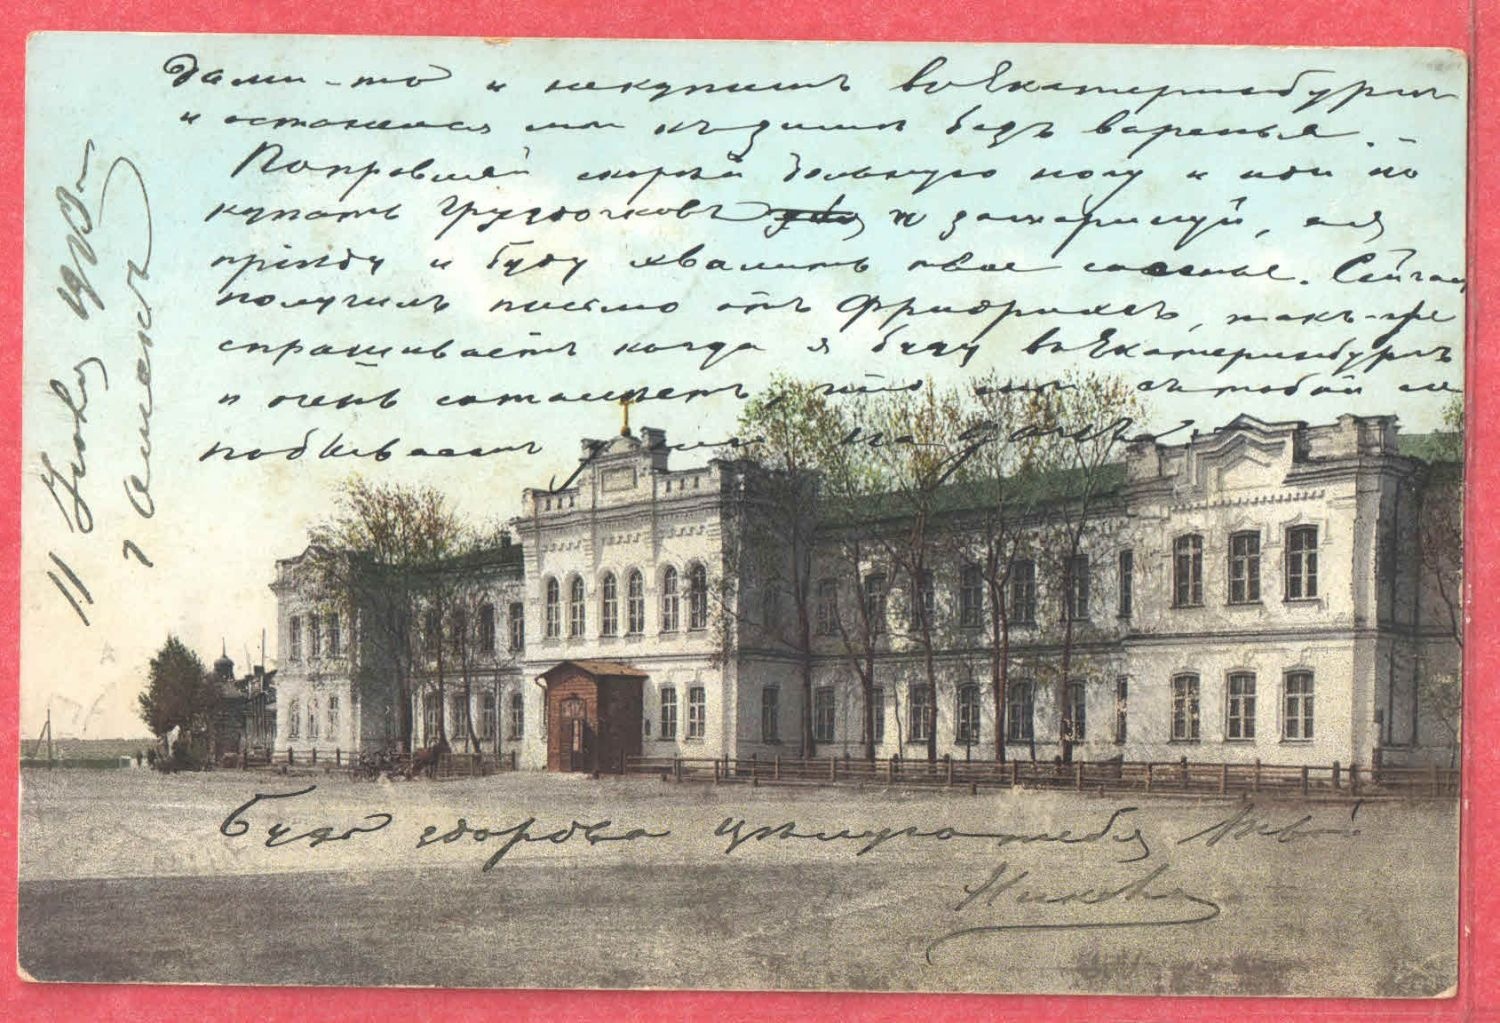 дами-то и некупишь въ Екатеринбургѣ
и останемся мы къ зимѣ безъ варенья. –
Поправляй скорѣй больную ногу и иди по
купать груздочковъ и замаринуй, а я
пріѣду и буду хвалить твое соленье. Сейчас
получилъ письмо отъ Фридрихсъ, такъ-же
спрашиваетъ когда я буду въ Екатеринбургѣ
и очень сожалѣетъ, что мы съ тобой не
побывали у них на дачѣ.
Будь здорова цѣлую тебя Твой
11 Іюля
г Омскъ